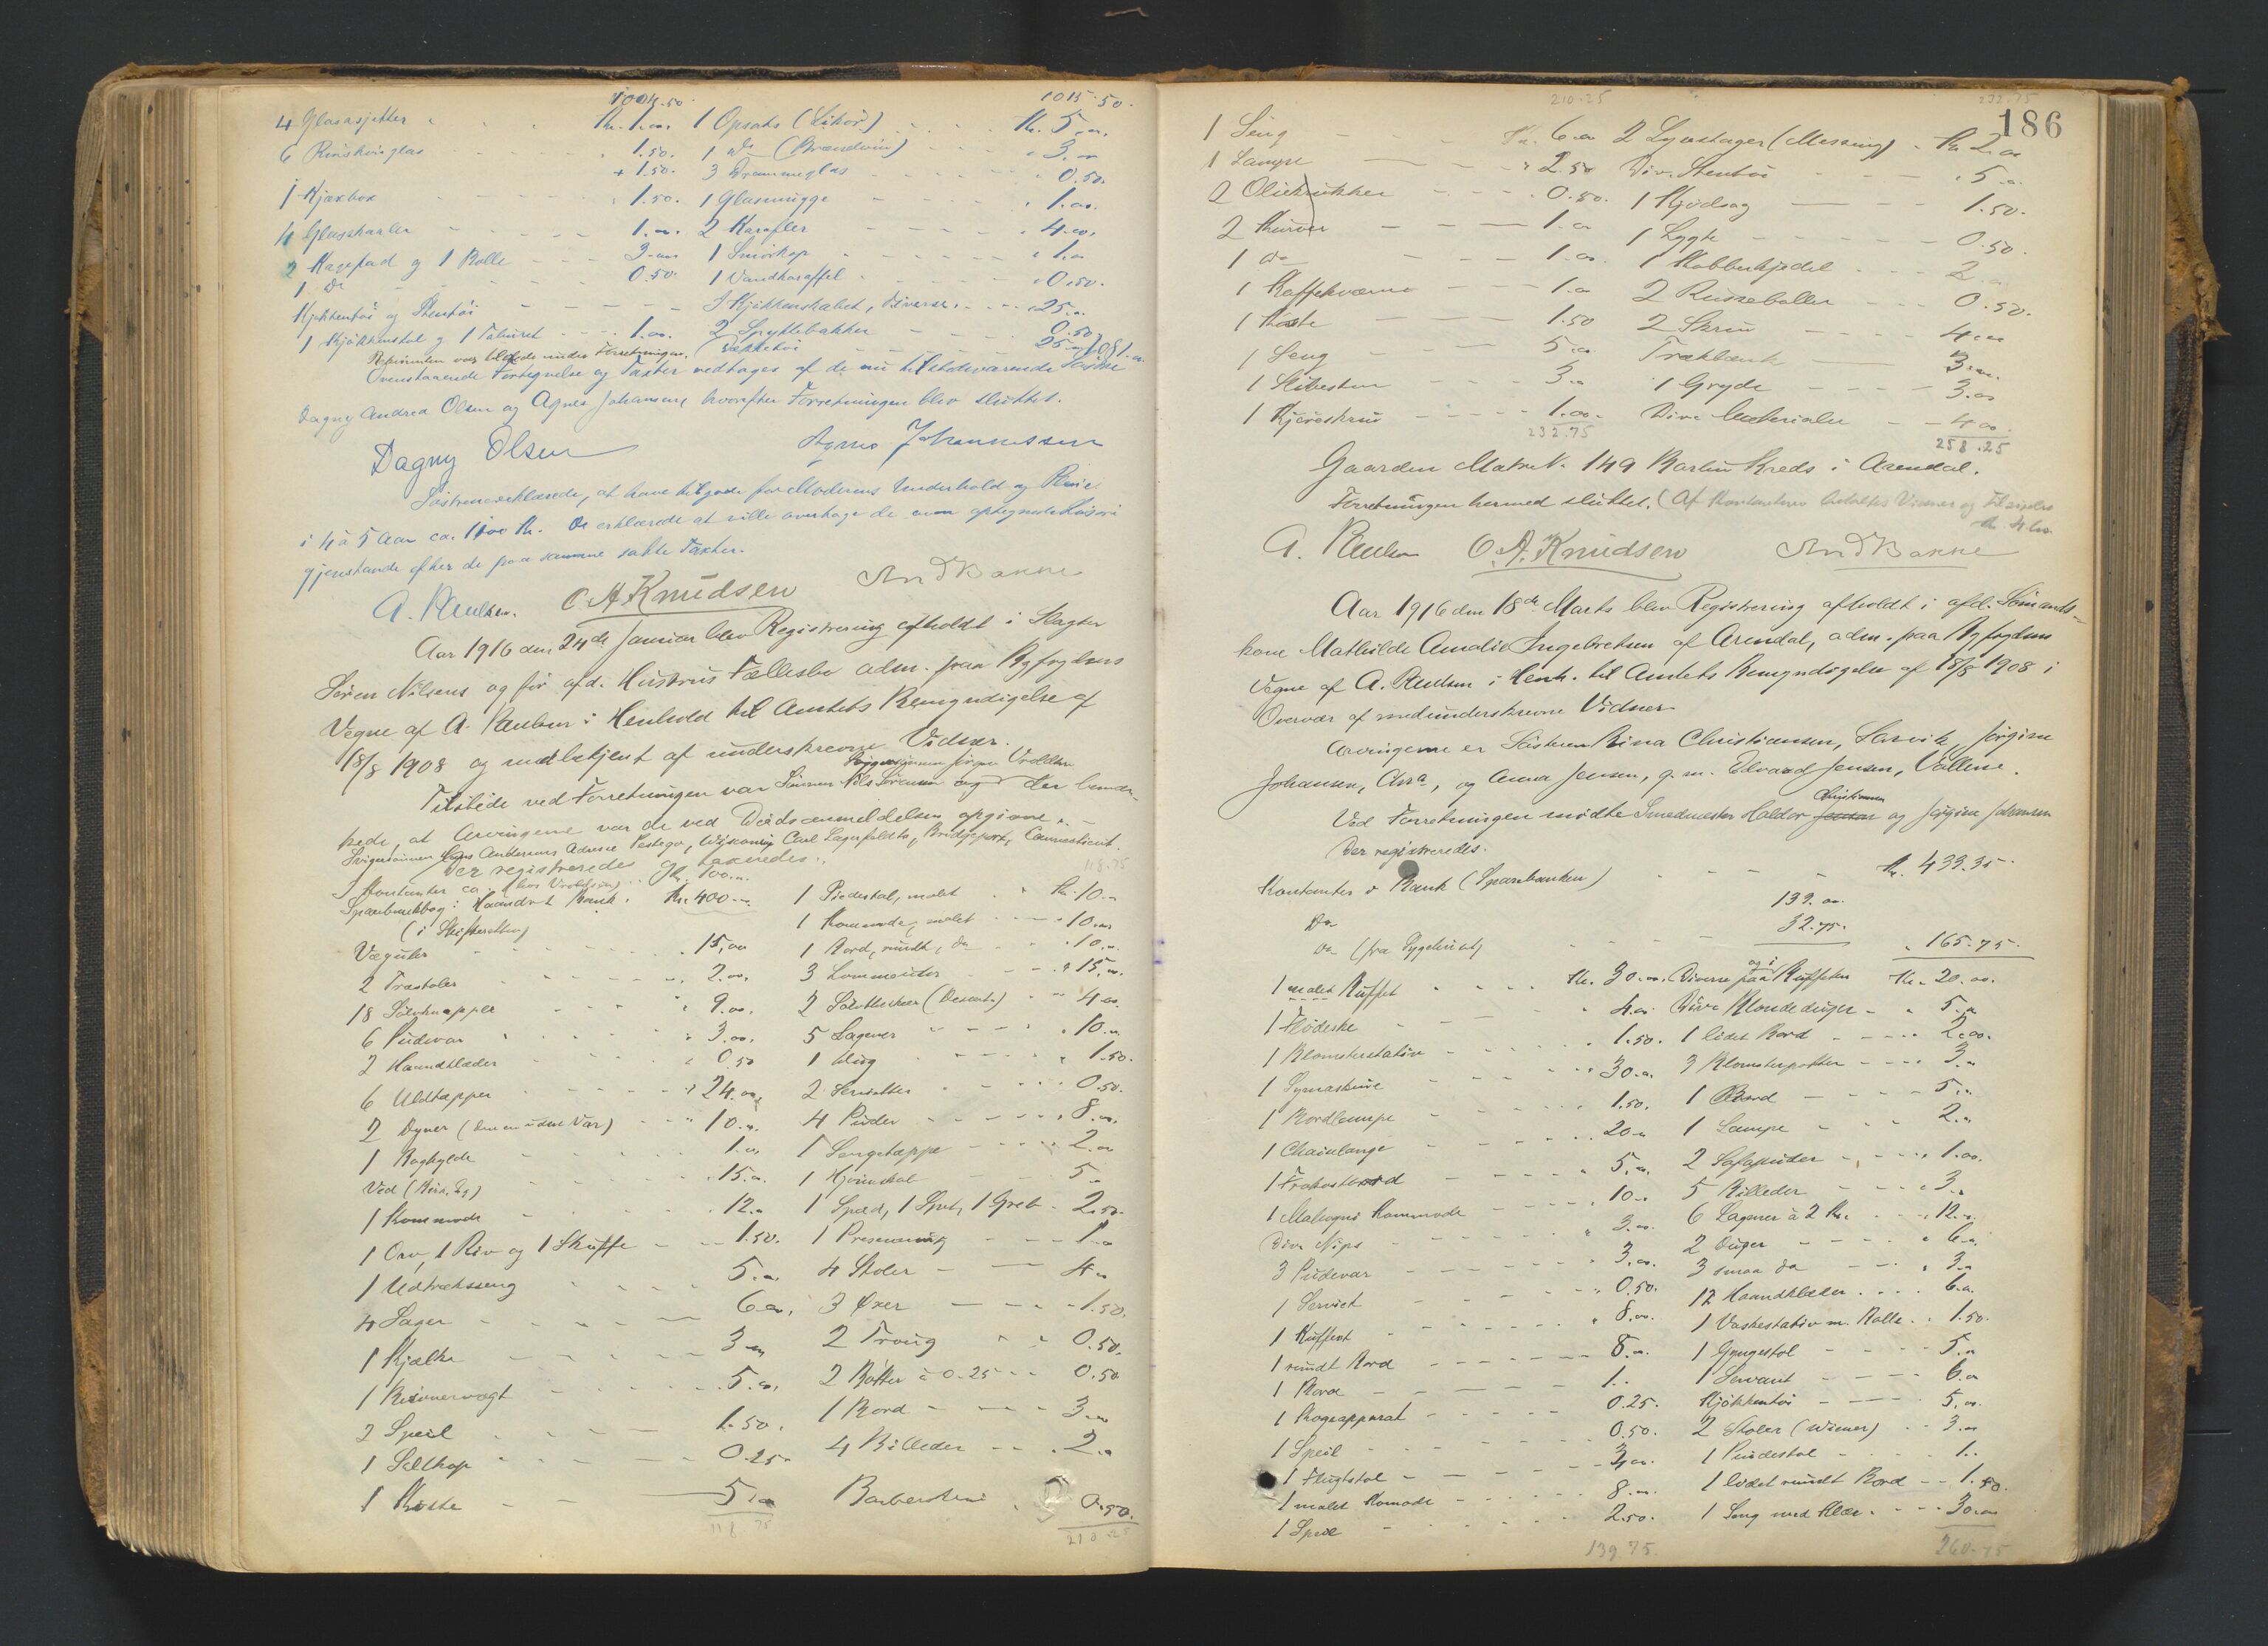 1004.50 1015.50.
4 Glasasjetter Kr. 1.00. 1 Opsats (Likør) Kr. 5.00.
6 Rinskvinglas 1.50. 1 do (Brændevin) 3.00
+ 1.50. 3 Drammeglas 0.50.
1 Kjaxbox 1.50. 1 Glasmugge 1.00.
4 Glasskaaler 1.00. 2 Karafler 4.00.
2 Kagefad og 1 Bolle 3.00 1 Smørkop 1.00
1 Do 0.50. 1 Vandkaraffel 0.50.
Kjøkkentøi og Stentøi I Kjøkkenskabet, diverse 25.00
1 Kjøkkenstol og 1 Taburet 1.00. 2 Spyttebakker 0.50
Dækketøi 25.00 1051.00
Ovenstaaende Fortegnelse og Taxter vedtages af de nu tilstedeværende Søstre
Dagny Andrea Olsen og Agnes Johansen, hvorefter Forretningen blev sluttet.
Dagny Olsen Agnes Johannessen
Søstrene erklærede, at have tilgode for Moderens Underhold og Pleie
i 4 à 5 Aar ca. 1100 Kr. De erklærede at ville overtage de oven optegnede Løsøre
gjenstande efter de paa samme satte Taxter.
A. Paulsen. O. A. Knudsen And Bakke
Aar 1916 den 24de Januar blev Registrering afholdt i Slagter
Søren Nilsens og før afd. Hustrus Fællesbo adm. paa Byfogdens
Vegne af A. Paulsen i Henhold til Amtets Bemyndigelse af
18/8 1908 og medbetjent af underskrevne Vidner.
Tilstede ved Forretningen var Sønnen Nils Sørensen og Svigersønnen Jørgen Vroldsen Der bemær-
kede, at Arvingerne var de ved Dødsanmeldelsen opgivne.
Svigersønnen Lars Andersens Adresse Westego, Wisconsin Carl Lagerfeldts, Bridgeport, Connecticut.
Der registreredes og taxeredes: 118.75
I Kontanter ca. (hos Vroldsen) Kr. 100.00
Sparebankbog i Haandv. Bank Kr. 400.00 1 Piedestal, malet Kr. 10.00
(i Skifteretten) 1 Kommode, malet 10.00
Væguhr 15.00 1 Bord, rundt, do 10.00
2 Træstoler 2.00. 3 Lommeuhr 15.00.
18 Sølvknapper 9.00. 2 Sølvtheskeer (Dessert) 4.00.
6 Pudevar 3.00. 5 Lagener 10.00
2 Haandklæder 0.50 1 Dug 1.50.
6 Uldtæpper 24.00 2 Servietter 0.50.
2 Dyner (den en uden Var) 10.00. 4 Puder 8.00.
1 Boghylde 1.00 1 Sengetæppe 2.00
Ved (Birk. Eg) 15.00. 1 Hjørneskab 5.00
1 Kommode 12.00 1 Spad, 1 Spet, 1 Greb 2.50.
1 Orv, 1 Riv og 1 Skuffe 1.50. 1 Presenning 1.00
1 Udtræksseng 5.00 4 Stoler 4.00
4 Sager 6.00. 3 Øxer 1.50.
1 Kjælke 3.00 2 Traug 0.50.
1 Bismervægt 5.00. 2 Bøtter à 0.25 0.50
2 Speil 1.50. 1 Bord 3.00
1 Selkop 0.25 4 Billeder 2.00
1 Kiste 5.00 Barberskrin 0.50.
118 75 210.25
186
210.25 232.75
1 Seng Kr. 6.00 2 Lysestager (Messing) Kr 2.00
1 Lampe 2.50 Div. Stentøi 5.00.
2 Oliekrukker 0.50. 1 Kjødsag 1.50.
2 Kurver 1.00 1 Lygte 0.50.
1 do 1.00. 1 Kobberkjedel 2.00
1 Kaffekværn 1.00 2 Russeballer 0.50.
1 Kiste 1.50 2 Skrin 4.00
1 Seng 5.00 Trækbænk 3.00.
1 Slibesten 3.00 1 Gryde 3.00
1 Kjøreskrin 1.00. Div. Materialer 4.00.
232.75 258.25
Gaarden Matr.N. 149 Barbu Kreds i Arendal.
Forretningen hermed sluttet. (Af Kontanterne betaltes Vidner og
Kr. 4.00.
A. Paulsen O. A. Knudsen And Bakke
Aar 1916 den 18de Marts blev Registrering afholdt i afd. Sømands-
kone Mathilde Amalie Ingebretsen af Arendal, adm. paa Byfogdens
Vegne af A. Paulsen i Henh. til Amtets Bemyndigelse af 18/8 1908 i
Overvær af medunderskrevne Vidner
Arvingerne er Søsteren Rina Christiansen, Larvik, Jørgine
Johansen, Ass., og Anna Jensen, g. m. Edvard Jensen, Vallene.
Ved Forretningen mødte Smedmester Haldor Jensen Christiansen og Jørgine Johansen
Der registreredes.
Kontanter i Bank (Sparebanken) Kr. 433.35.
Do 133.00
Do (fra Sygehuset) 32.75. 165.75.
1 malet Buffet Kr. 30.00. Diverse paa og i Buffeten Kr. 20.00.
1 Flødeske 4.00 Div. Blondeduger 5.00
1 Blomsterstativ 1.50. 1 lidet Bord 2.00.
1 Symaskine 30.00. 3 Blomsterpotter 3.00
1 Bordlampe 1.50. 1 Bord 5.00
1 Chaiselange 20.00 1 Lampe 2.00
1 Frokostbord 5.00. 2 Sofapuder 1.00.
1 Mahogni Kommode 10.00 5 Billeder 3.00
Div. Nips 3.00. 6 Lagener à 2 Kr. 12.00
3 Pudevar 3.00. 2 Duger 6.00
1 Serviet 0.50. 3 smaa do 3.00
1 Kuffert 8.00. 12 Haandklæder 6.00
1 rundt Bord 8.00. 1 Vaskestativ m. Balle 1.50.
1 Bord 1.00 1 Gyngestol 5.00
1 Kogeapparat 0.25. 1 Servant 6.00
1 Speil 0.50. Kjøkkentøi 5.00.
1 Flugtstol 3.00. 2 Stoler (Wiener) 3.00
1 malet Komode 8.00. 1 Pindestol 1.00
1 Speil 2.50. 1 lidet rundt Bord 1.50.
1 Seng med Klær 30.00
139.75 260.75